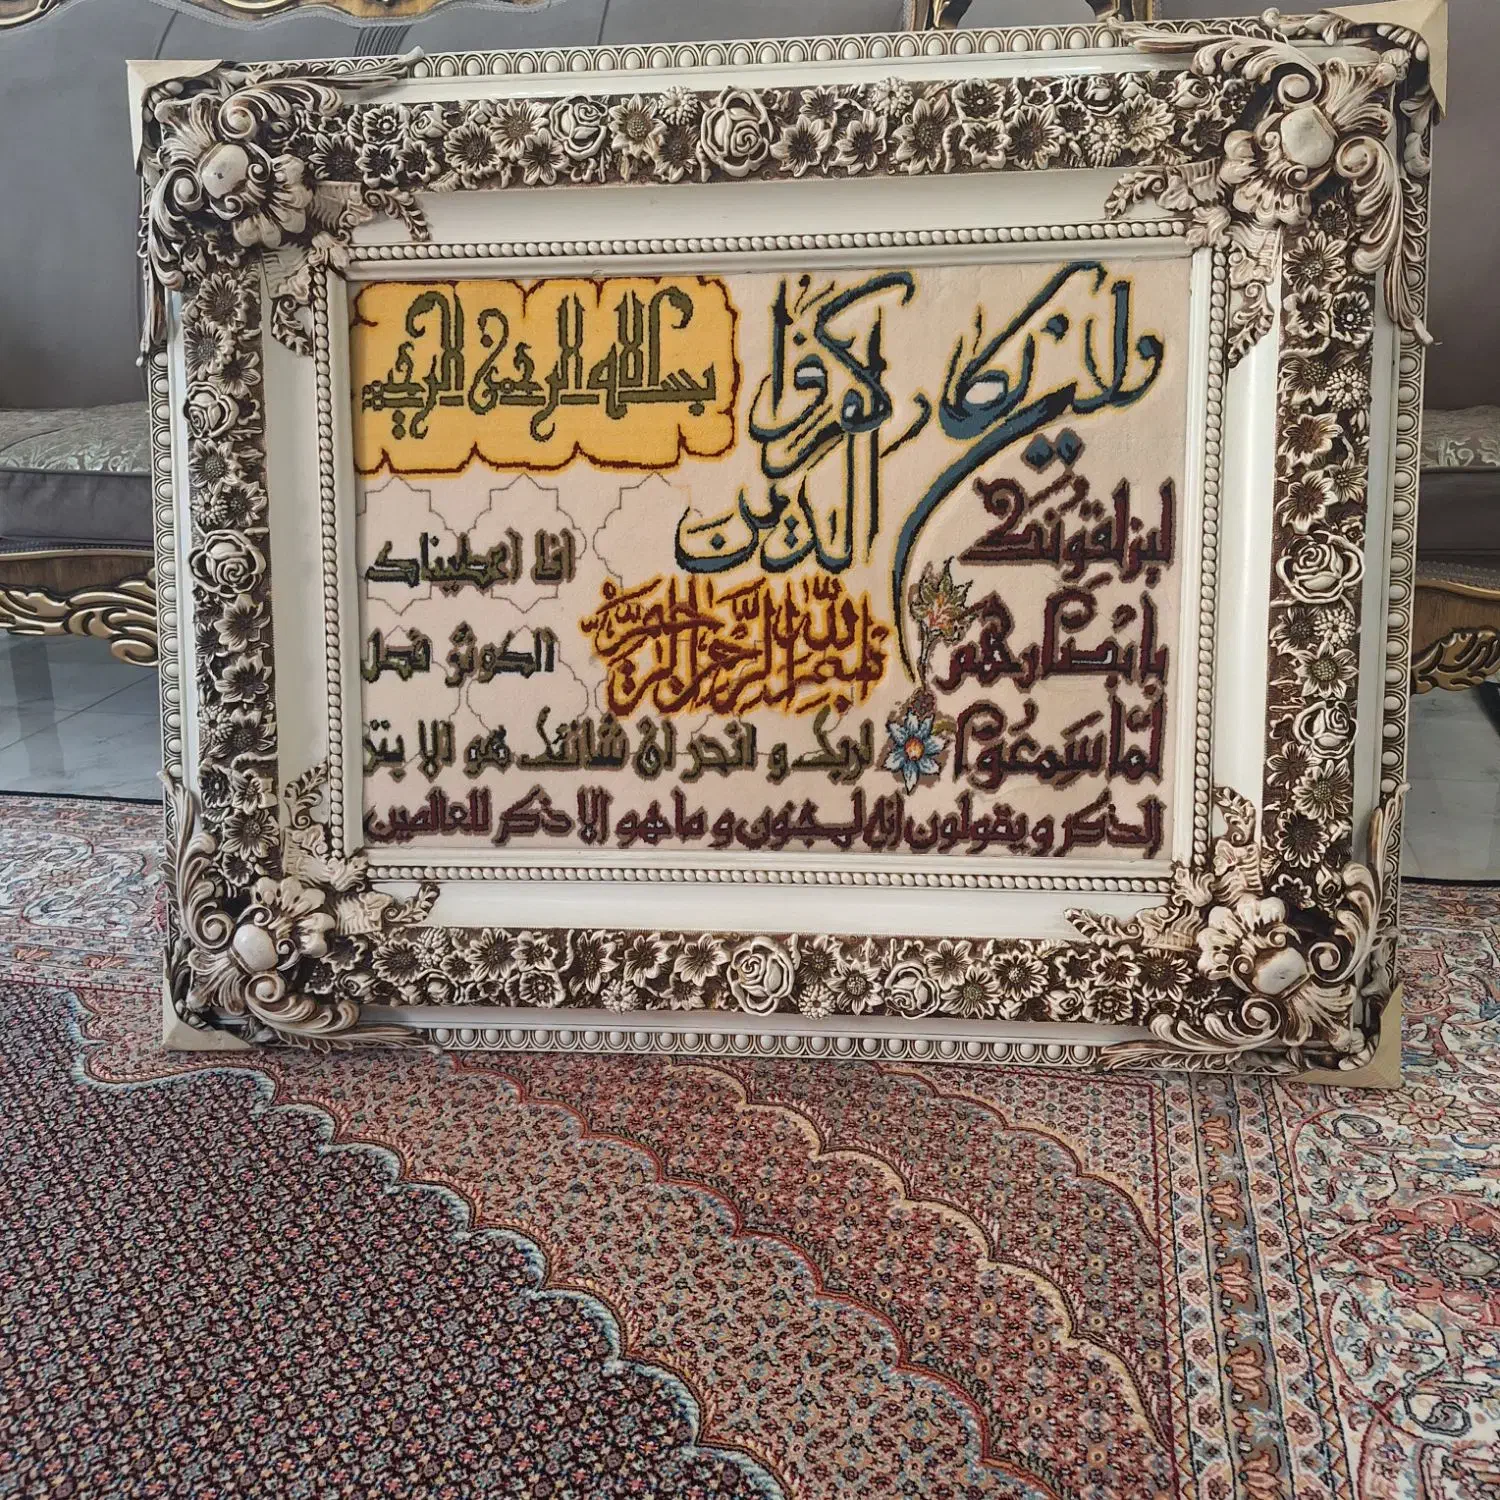 بسم الله الرحمن الرحیم
وان یکاد
الذین کفروا
لیزلقونک
بابصارهم
لما سمعوا
الذکر و یقولون انه لمجنون و ما هو الا ذکر للعالمین
بسم الله الرحمن الرحیم
انا اعطیناک
الکوثر فصل
لربک و انحر ان شانئک هو الابتر